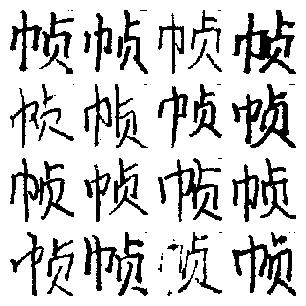 帧帧帧帧
帧帧帧帧
帧帧帧帧
帧帧帧帧